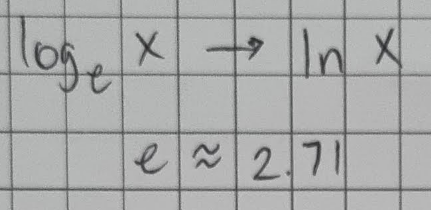 logₑ x → ln x
e ≈ 2.71